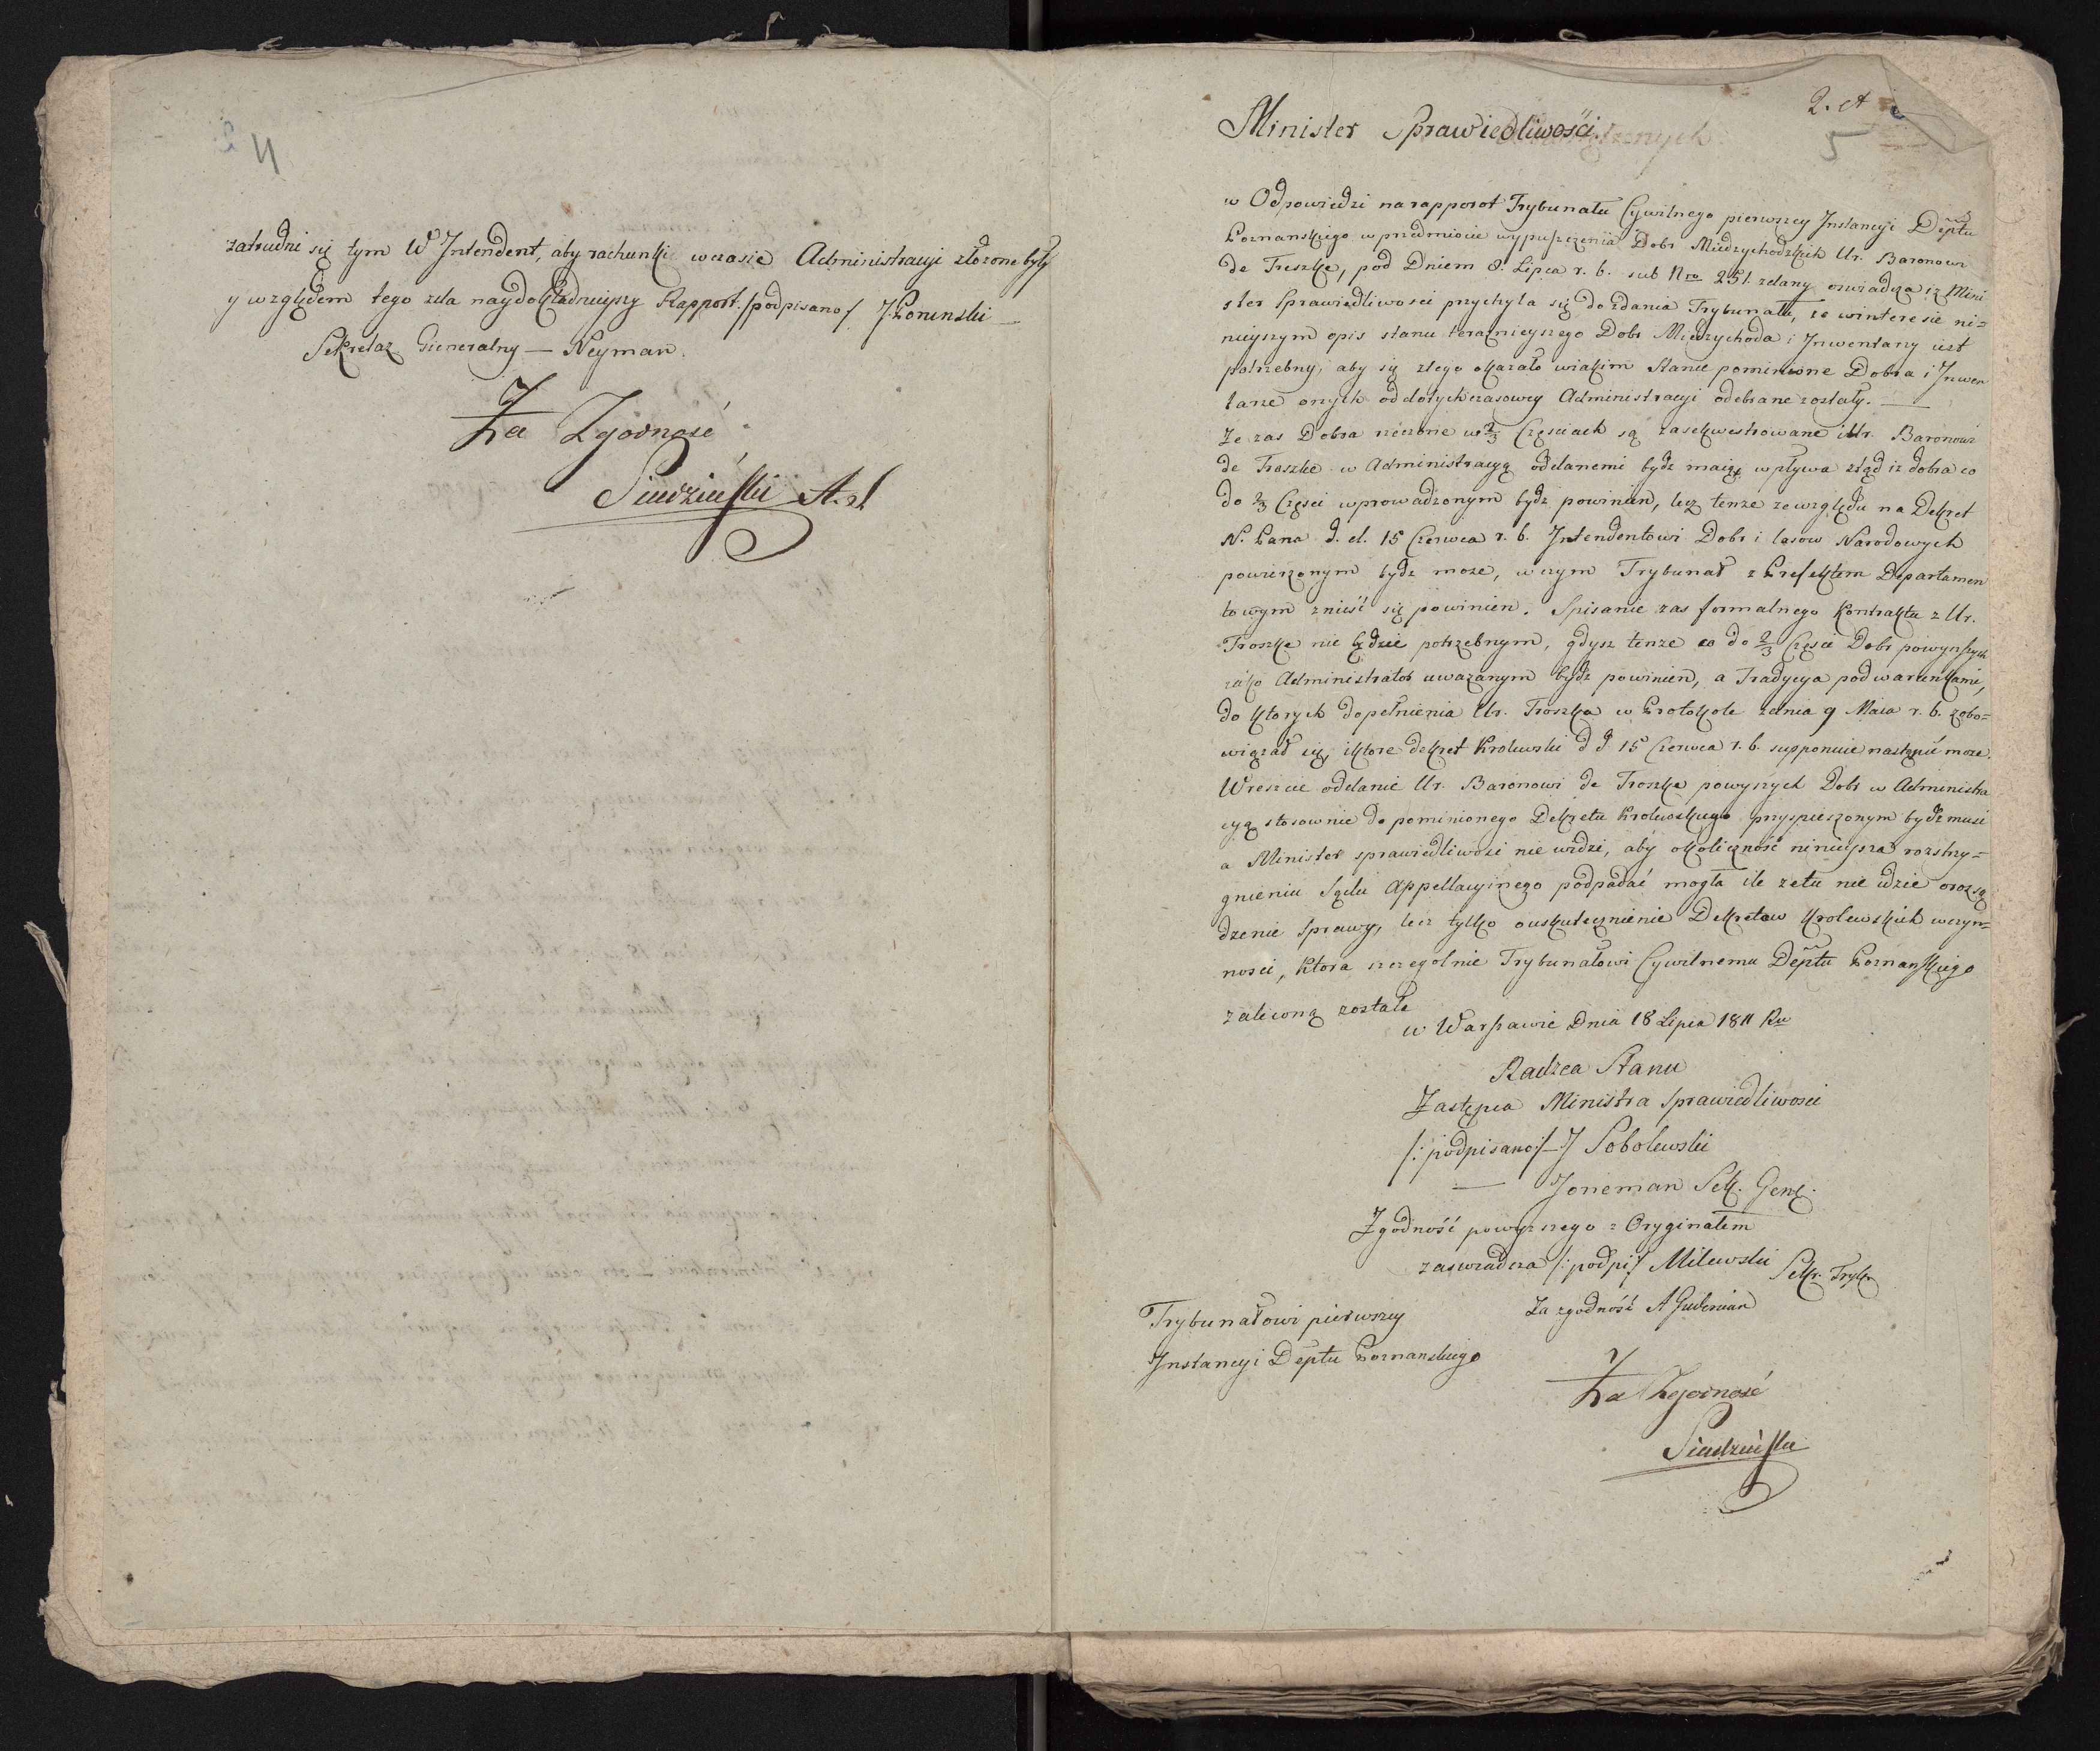 4
zatrudni się tym W Intendent, aby rachunki w czasie Administracyi złożone były
y względem tego zda naydokładnieyszy Rapport. /podpisano/ J Poninski —
Sekretaz Gieneralny — Neyman.
Za Zgodność
2. A
5
Minister Sprawiedliwości.
w Odpowiedzi na rapport Trybunału Cywilnego pierwszey Instancyi Deptu
Poznanskiego w przedmiocie wypuszczenia Dobr Miedzychodzkich Ur. Baronowi
de Troszke, pod Dniem 8. Lipca r. b. sub Nro 251. zdany oswiadcza iz Mini
ster Sprawiedliwosci przychyla się do zdania Trybunału, że w interesie ni=
nieyszym opis stanu teraznieyszego Dobr Miedzychoda i Inwentarzy iest
potrzebny, aby się z tego okazało w iakim Stanie pominione Dobra i Inwen
tarze onych od dotychczasowey Administracyi odebrane zostały. —
Ze zas Dobra rzeczone w 2/3 Częsciach są zasekwestrowane i Ur. Baronowi
de Troszke w Administracyą oddanemi bydz maią, wpływa ztąd iz dobra co
do 2/3 Częsci wprowadzonym bydz powinien, lecz tenze ze względu na Dekret
N. Pana d. d. 15 Czerwca r. b. Intendentowi Dobr i lasow Narodowych
powierzonym bydz moze, w czym Trybunał z Prefektem Departamen
towym znieść się powinien. Spisanie zas formalnego Kontraktu z Ur.
Troszke nie będzie potrzebnym, gdysz tenze co do 2/3 Częsci Dobr powyższych
iako Administrator uwazanym bydz powinien, a Tradycya pod warunkami,
do ktorych dopełnienia Ur. Troszke w Protokole z dnia 9 Maia r. b. zobo=
wiązał się, i ktore dekret Krolewski d d 15 Czerwca r. b. supponuie nastąpić moze.
Wreszcie oddanie Ur. Baronowi de Troszke powyszych Dobr w Administra
cyą stosownie do pominionego Dekretu Krolewskiego przyspieszonym bydz musi
a Minister sprawiedliwosci nie widzi, aby okoliczność ninieysza rozstrzy=
gnieniu Sądu Appellacyinego podpadać mogła ile ze tu nie idzie o rozsą
dzenie Sprawy, lecz tylko o uskutecznienie Dekretow Krolewskich w czyn=
nosci, ktora szczegolnie Trybunałowi Cywilnemu Deptu Poznanskiego
zaleconą została
w Warszawie Dnia 18 Lipca 1811 Ru
Radzca Stanu
Zastępca Ministra Sprawiedliwosci
/: podpisano :/ J Sobolewski
— Joneman Sek. Genl.
Zgodność powyzszego z Oryginałem
zaswiadcza /: podpi :/ Milewski Sekr. Tryb.
Za zgodność A Gubenian
Trybunałowi pierwszey
Instancyi Deptu Poznanskiego
Za Zgodność